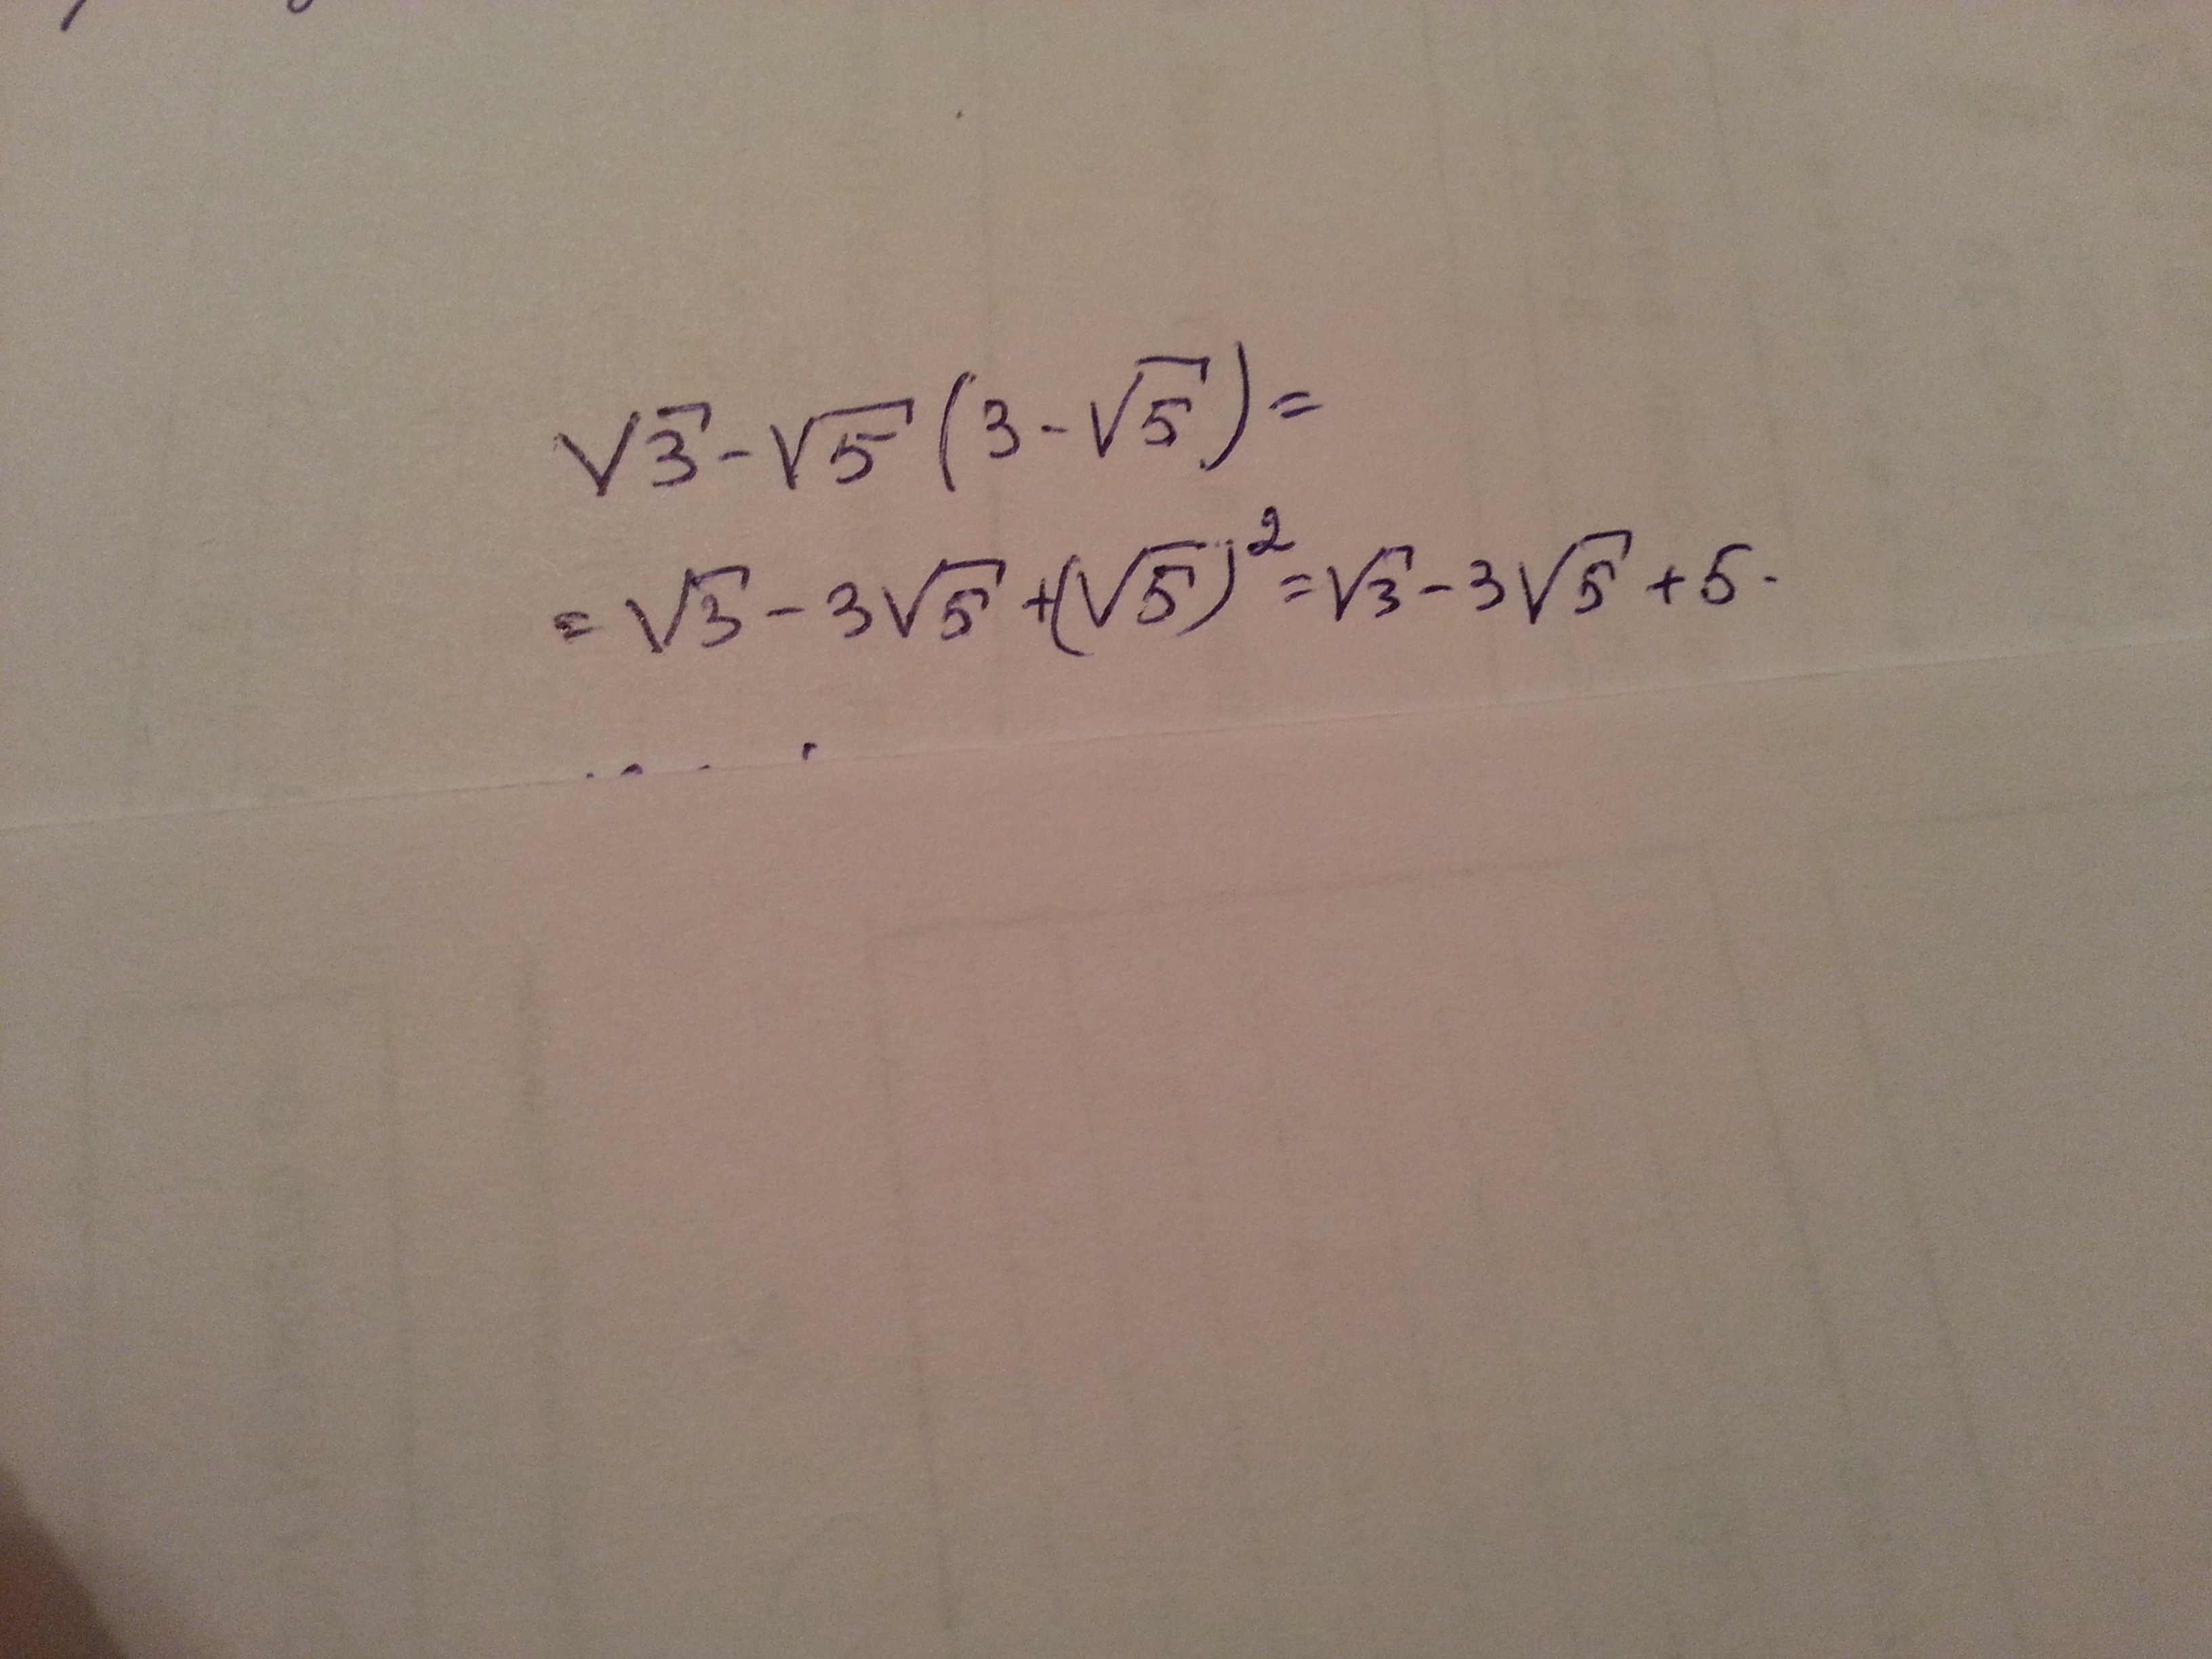 √3-√5(3-√5)=
=√3-3√5+(√5)²=√3-3√5+5.